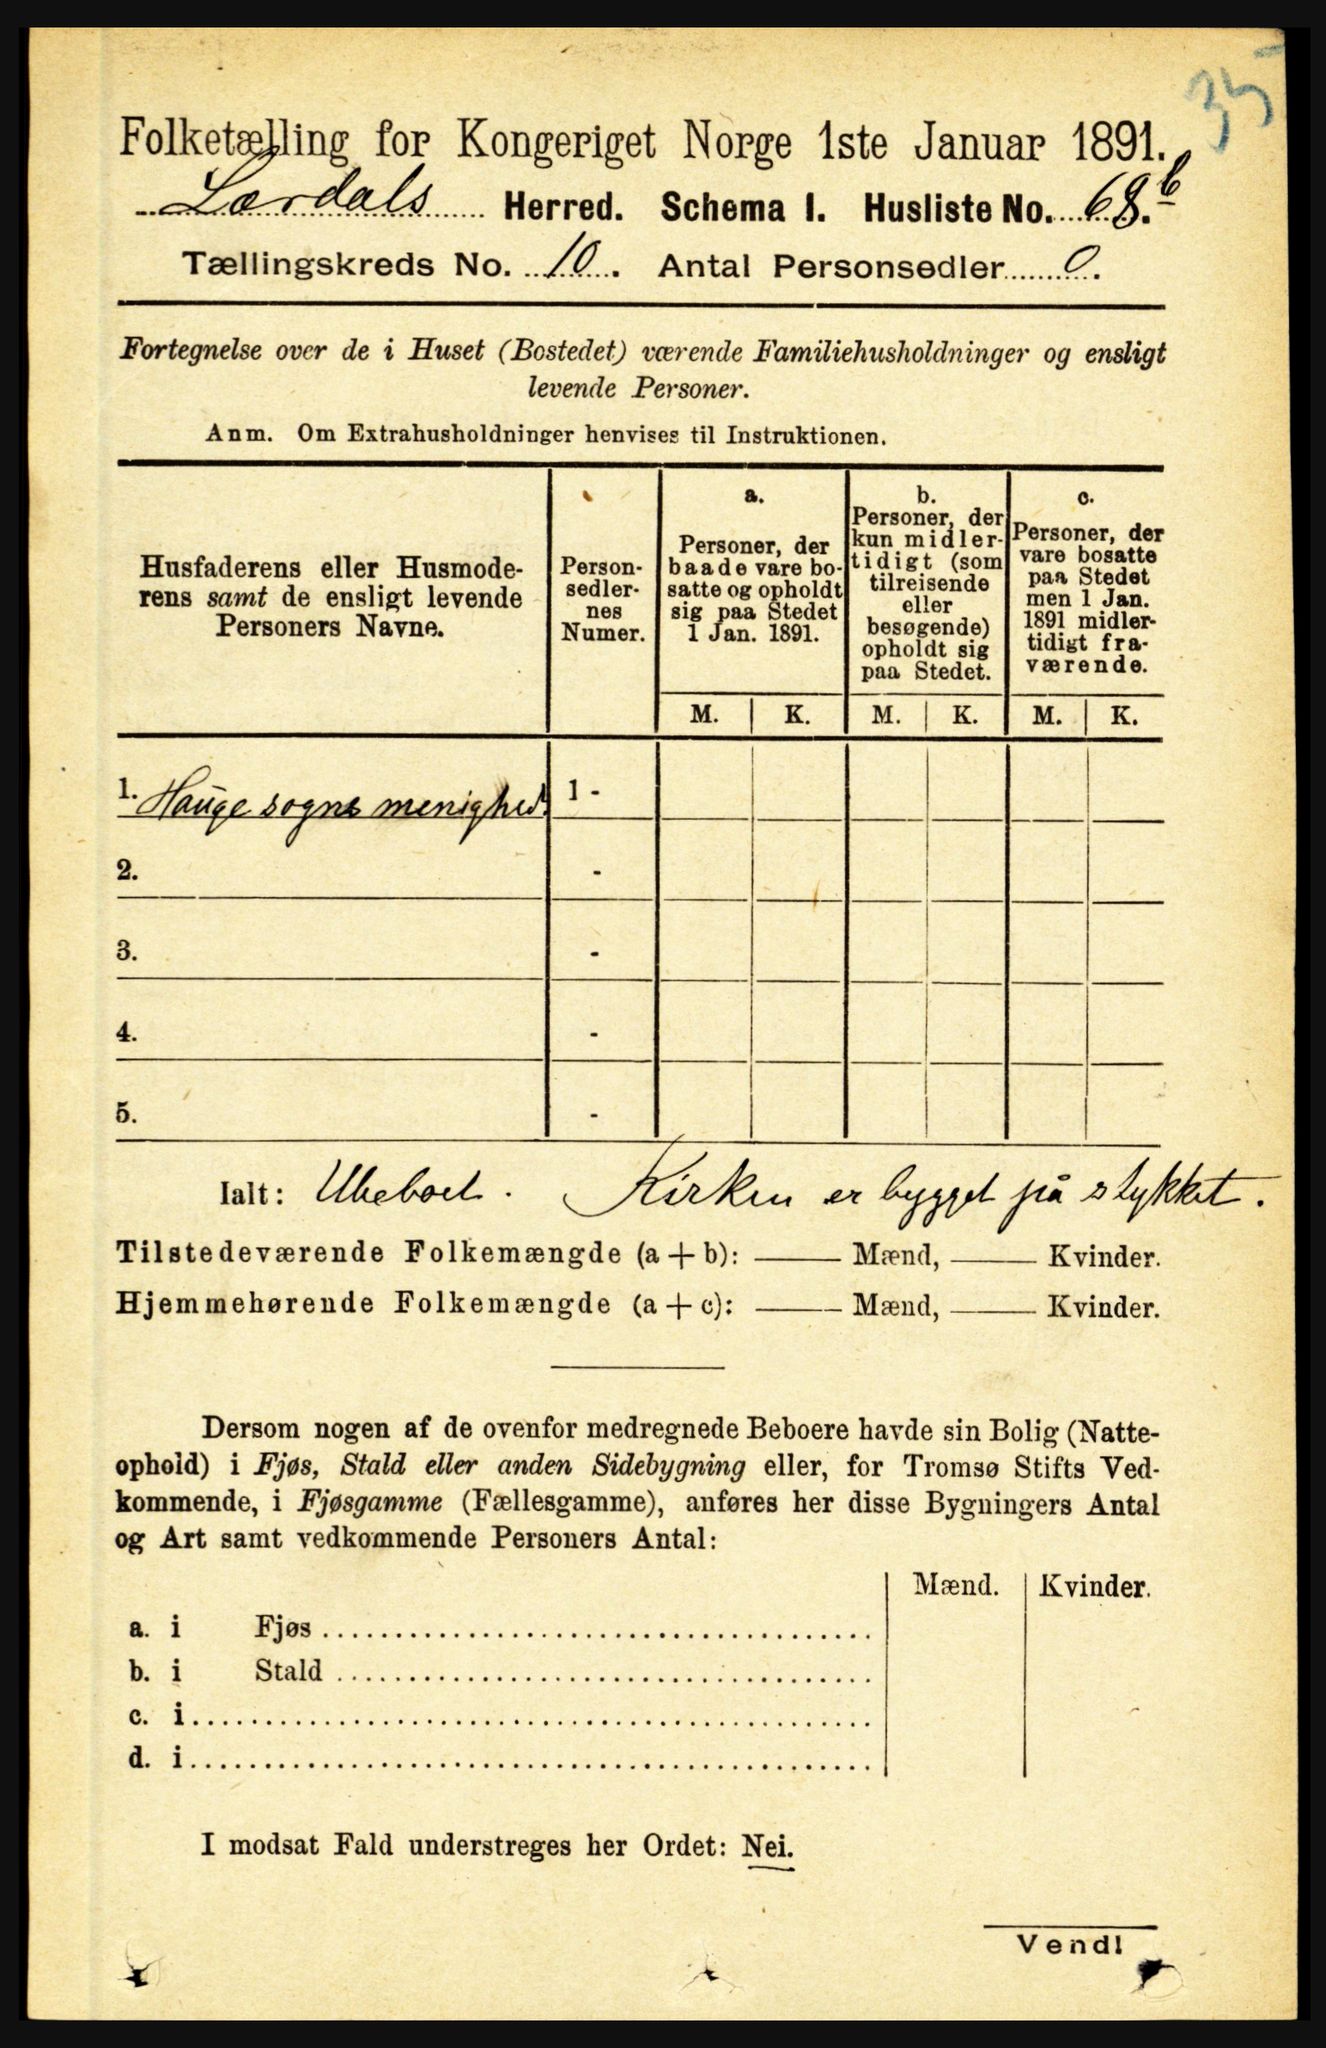 35
Folketælling for Kongeriget Norge 1ste Januar 1891.
Lærdals Herred. Schema I. Husliste No. 68.b
Tællingskreds No. 10. Antal Personsedler 0.
Fortegnelse over de i Huset (Bostedet) værende Familiehusholdninger og ensligt
levende Personer.
Anm. Om Extrahusholdninger henvises til Instruktionen.
Husfaderens eller Husmode-
rens samt de ensligt levende
Personers Navne.
Person-
sedler-
nes
Numer.
a.
Personer, der
baade vare bo-
satte og opholdt
sig paa Stedet
1 Jan. 1891.
b.
Personer, der
kun midler-
tidigt (som
tilreisende
eller
besøgende)
opholdt sig
paa Stedet.
c.
Personer, der
vare bosatte
paa Stedet
men 1 Jan.
1891 midler-
tidigt fra-
værende.
M. K. M. K. M. K.
1. Hauge sogns menighed. 1 -
2. -
3. -
4. -
5. -
Ialt: Ubeboet. Kirken er bygget på stykket.
Tilstedeværende Folkemængde (a + b): —— Mænd, —— Kvinder.
Hjemmehørende Folkemængde (a + c): —— Mænd, —— Kvinder.
Dersom nogen af de ovenfor medregnede Beboere havde sin Bolig (Natte-
ophold) i Fjøs, Stald eller anden Sidebygning eller, for Tromsø Stifts Ved-
kommende, i Fjøsgamme (Fællesgamme), anføres her disse Bygningers Antal
og Art samt vedkommende Personers Antal:
Mænd. Kvinder.
a. i Fjøs
b. i Stald
c. i
d. i
I modsat Fald understreges her Ordet: Nei.
Vend!